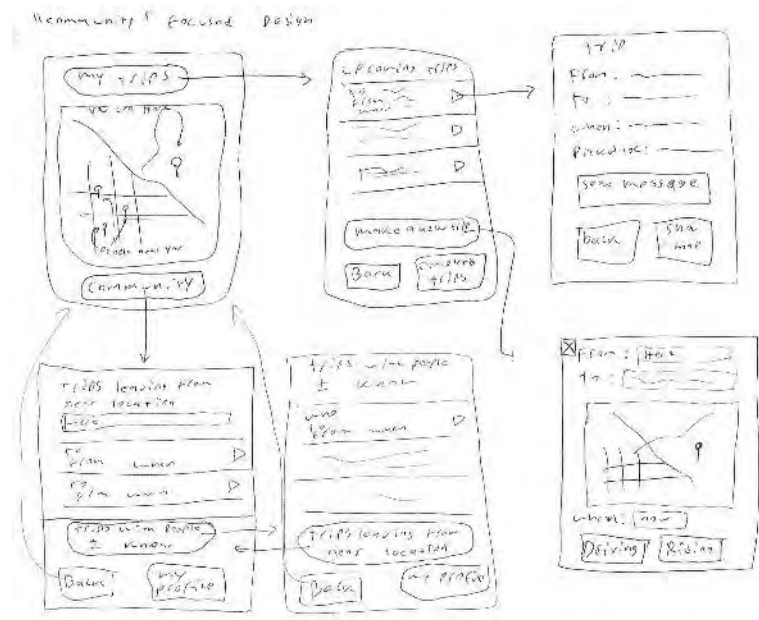 "community" Focused Design
my trips
You are Here
People near you
Community
upcoming trips
to
from
when
make a new trip
Back
favourite
trips
trip
From:
to:
when:
send message
back
map
trips leaving from
near location
Here
to
from when
to
from when
trips with people
I know
Back
my
profile
trips with people
I know
who
to
from when
trips leaving from
near location
Back
my profile
From: Here
to:
when: now
Driving
Riding